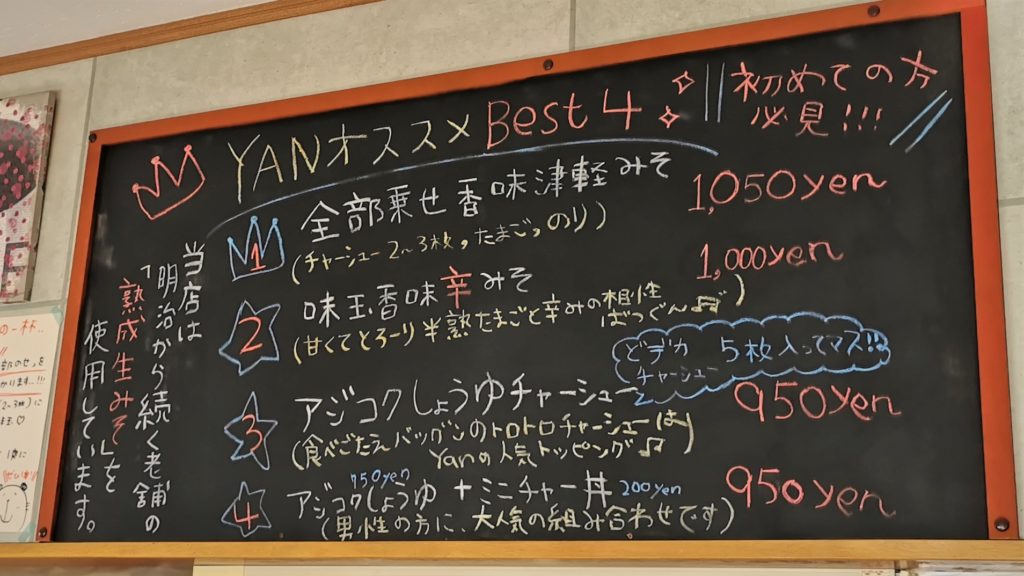 YANオススメ Best 4
初めての方
必見!!!
1 全部乗せ香味津軽みそ 1,050yen
(チャーシュー2~3枚,たまご,のり)
2 味玉香味辛みそ 1,000yen
(甘くてとろーり半熟たまごと辛みの相性
ばつぐん♫)
どデカ 5枚入ってマス!!
チャーシュー
3 アジコクしょうゆチャーシュー 950yen
(食べごたえバツグンのトロトロチャーシューは
Yanの人気トッピング♫)
4 アジコクしょうゆ 750yen +ミニチャー丼 200yen 950yen
(男性の方に、大人気の組み合わせです)
当店は
「明治から続く老舗の
熟成生みそ」を
使用しています。
の一杯..